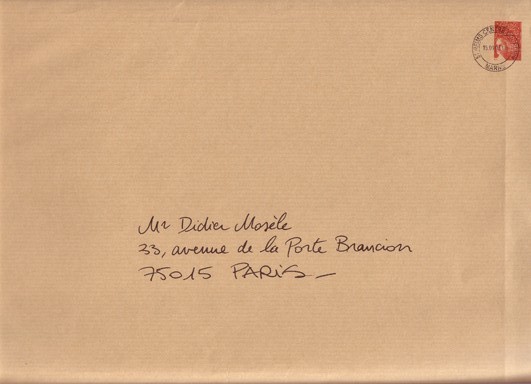 Mr Didier Mosèle
33, avenue de la Porte Brancion
75015 PARIS